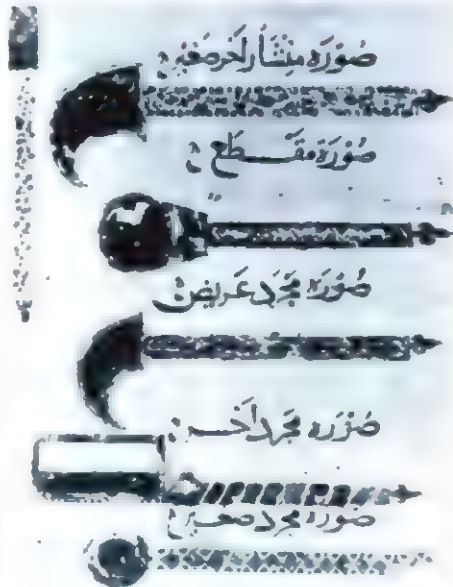 صُورَة مِنْشَار آخر صغير
صُورَة مقطع
صُورَة مجرد عَريض
صُورَة مجرد آخر
صورة مجرد صغير